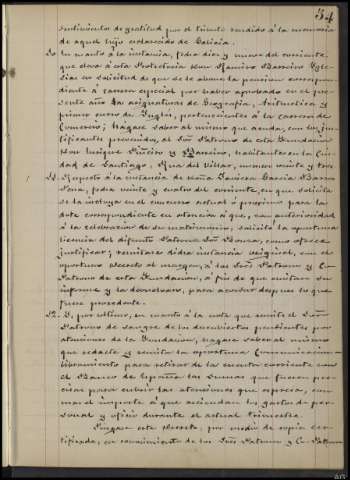 54
sentimientos de gratitud por el tributo rendido á la memoria
de aquel hijo esclarecido de Galicia.
20. En cuanto á la instancia, fecha diez y nueve del corriente,
que eleva á este Protectorado Don Ramiro Barreiro Igle-
sias en solicitud de que se le abone la pension correspon-
diente á carrera especial por haber aprobado en el pre-
sente año las asignaturas de Geografía, Aritmética y
primer curso de Inglés, pertenecientes á la carrera de
Comercio; hágase saber al mismo que acuda, con los jus-
tificantes prevenidos, al Sr. Patrono de esta Fundacion
Don Enrique Piñeiro y habitante en la Ciu-
dad de Santiago, Rua del Villar, numero veinte y tres
21. Respecto á la instancia de Doña Javiera García Barra
Pena, fecha veinte y cuatro del corriente, en que solicita
se la incluya en el concurso actual ó proximo para la
dote correspondiente en atencion á que, con anterioridad
á la celebracion de su matrimonio, solicitó la oportuna
licencia del difunto Patrono Don Bouza, como ofrece
justificar; remítase dicha instancia original, con el
oportuno decreto al margen, á los Sres. Patrono y Co-
Patrono de esta Fundacion, á fin de que emitan su
informe y la devuelvan, para acordar despues lo que
fuere procedente.
22. Y, por último, en cuanto á la nota que remite el Señor
Patrono de Lanzós de los descubiertos pendientes por
atenciones de la Fundacion, hágase saber al mismo
que redacte y remita la oportuna Comunicacion-
libramiento para retirar de la cuenta corriente con
el Banco de España las sumas que fueren pre-
cisas para cubrir las atenciones que expresa, con
mas el importe á que asciendan los gastos de per-
sonal y oficio durante el actual trimestre.
Póngase este decreto, por medio de copia cer-
tificada, en conocimiento de los Sres. Patrono y Co-Patrono